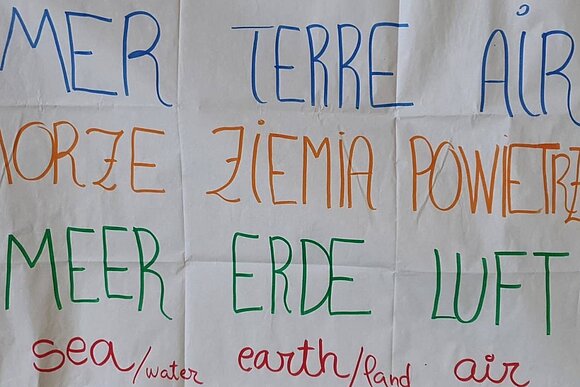 MER TERRE AIR
MORZE ZIEMIA POWIETRZ
MEER ERDE LUFT
sea/water earth/land air